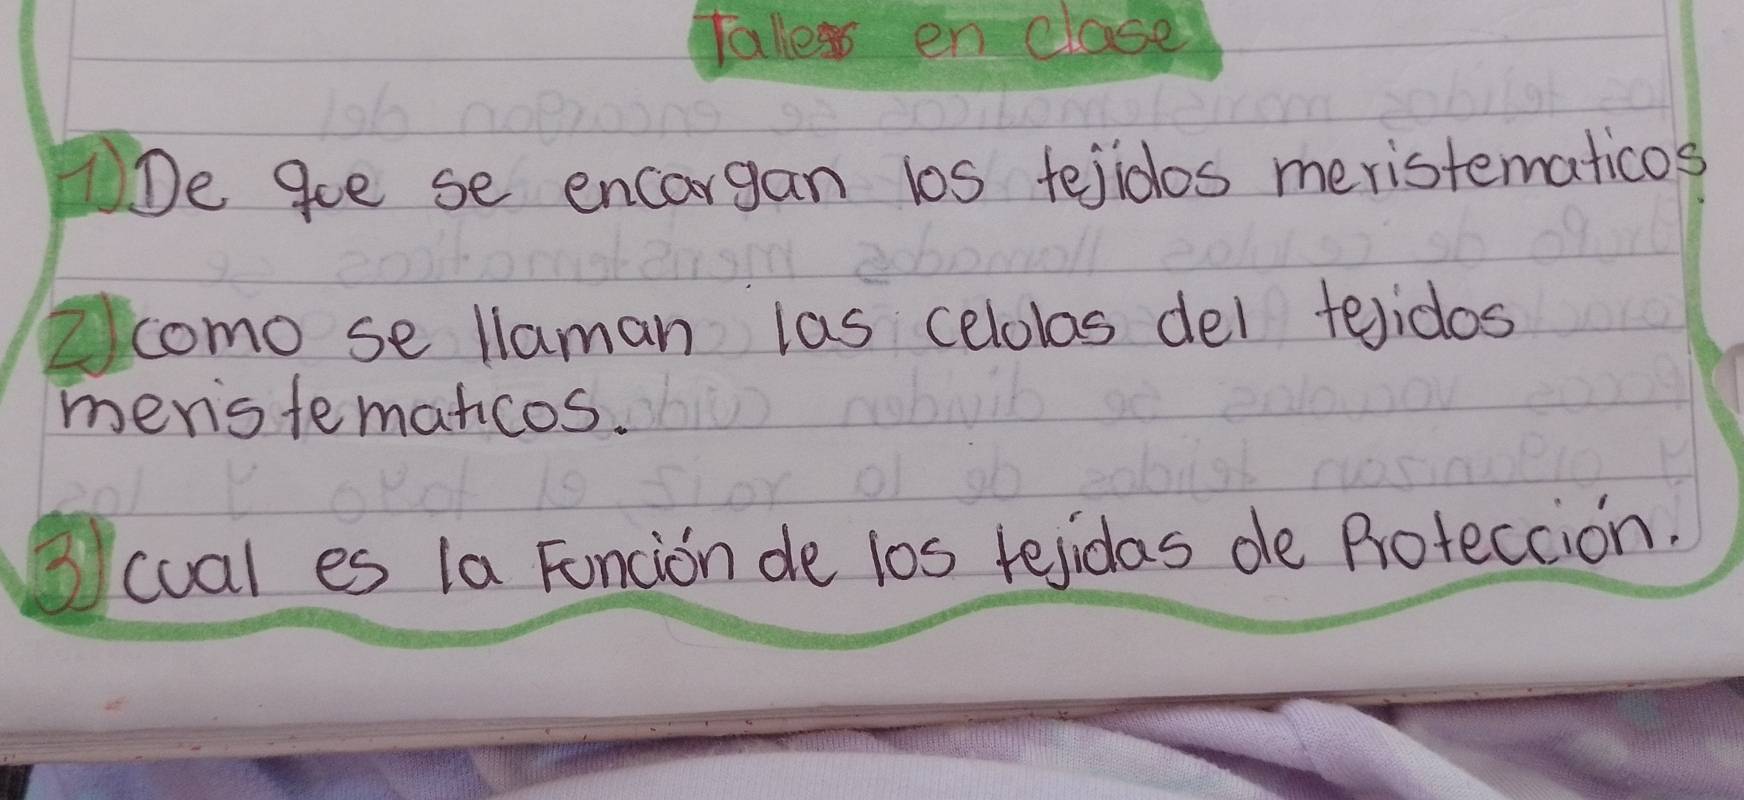 Taller en clase
1) De que se encargan los tejidos meristematicos
2) como se llaman las celulas del tejidos
meristematicos.
3) cual es la Función de los tejidas de Protección.